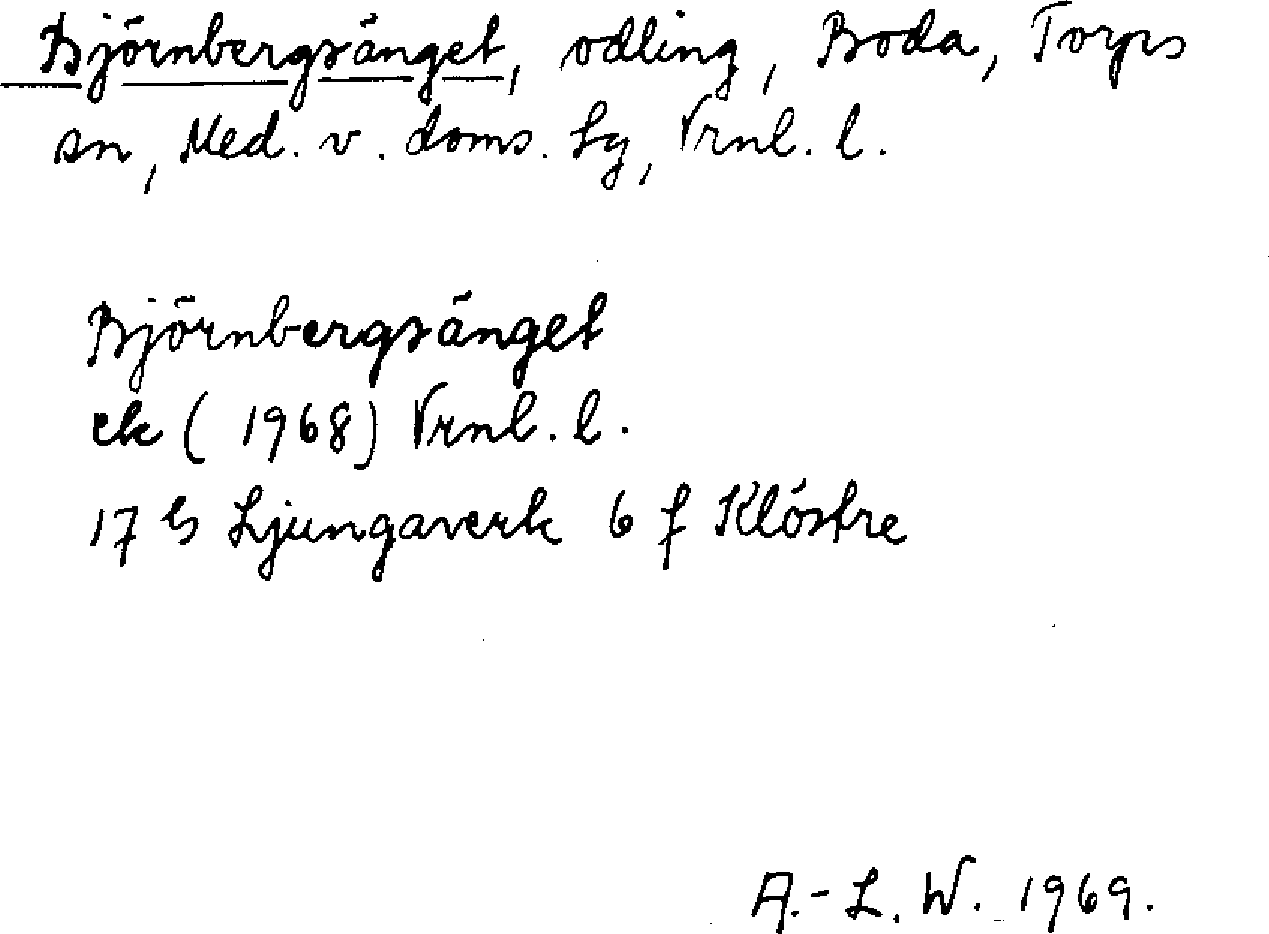 Björnbergsänget, odling, Boda, Torps
sn, Med. v. doms. lg, Vrnl. l.
Björnbergsänget
ek (1968) Vrnl. l.
17 G Ljungaverk 6 f Klöstre
A.-L. W. 1969.